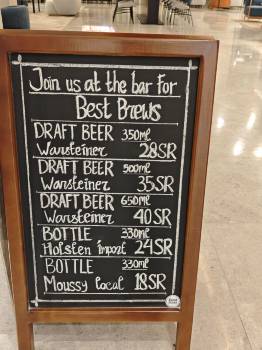 Join us at the bar for
Best Brews
DRAFT BEER 350ml
Warsteiner 28SR
DRAFT BEER 500ml
Warsteiner 35SR
DRAFT BEER 650ml
Warsteiner 40SR
BOTTLE 330ml
Holsten import 24SR
BOTTLE 330ml
Moussy local 18SR